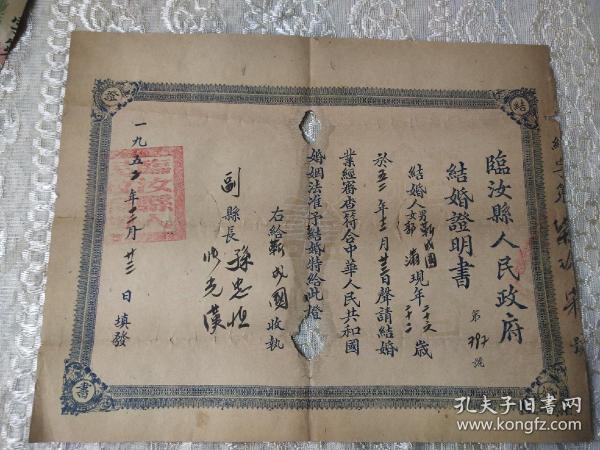 臨汝縣人民政府
結婚證明書
第 號
結婚人男靳成國 女郭 現年二十六 二十二 歲
於五二年二月廿三日聲請結婚
業經審查符合中華人民共和國
婚姻法准予結婚特給此證
右給靳成國收執
副縣長 孫忠恒
一九五二年二月廿三日填發
臨汝縣人
結
證
書
孔夫子旧书网
www.kongfz.com